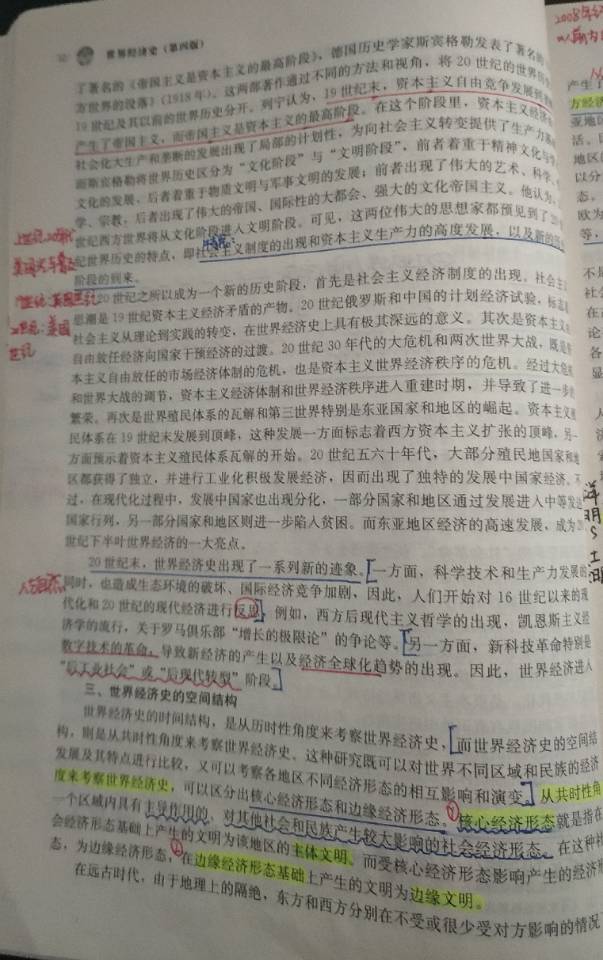 世界经济史（第四版）
了著名的《帝国主义是资本主义的最高阶段》，德国历史学家斯宾格勒发表了著名的
方世界的没落》（1918年）。这两部著作通过不同的方法和视角，将20世纪的世界历
19世纪及其以前的世界历史分开。列宁认为，19世纪末，资本主义自由竞争发展到
产生了帝国主义，而帝国主义是资本主义的最高阶段。在这个阶段里，资本主义经济
社会化大生产和垄断的发展出现了局部的计划性，为向社会主义转变提供了生产力
而斯宾格勒将世界历史区分为“文化阶段”与“文明阶段”，前者着重于精神文化与
文化的发展，后者着重于物质文明与军事文明的发展；前者出现了伟大的艺术、科学、
学、宗教，后者出现了伟大的帝国、国际性的大都会、强大的文化帝国主义。他认为，
世纪西方世界将从文化阶段进入文明阶段。可见，这两位伟大的思想家都预见到了20
纪世界历史的特点，即社会主义制度的出现和资本主义生产力的高度发展，以及新的
阶段的到来。
20世纪之所以成为一个新的历史阶段，首先是社会主义经济制度的出现。社会主
思潮是19世纪资本主义经济矛盾的产物。20世纪俄罗斯和中国的计划经济试验，标志
社会主义从理论到实践的转变，在世界经济史上具有极其深远的意义。其次是资本主义
自由放任经济向国家干预经济的过渡。20世纪30年代的大危机和两次世界大战，既是
本主义自由放任的市场经济体制的危机，也是资本主义世界经济秩序的危机。经过大危
和世界大战的调节，资本主义经济体制和世界经济秩序进入重建时期，并导致了进一步
繁荣。再次是世界殖民体系的瓦解和第三世界特别是东亚国家和地区的崛起。资本主义
民体系在19世纪末发展到顶峰，这种发展一方面标志着西方资本主义扩张的顶峰，另一
方面预示着资本主义殖民体系瓦解的开始。20世纪五六十年代，大部分殖民地国家和地
区都获得了独立，并进行工业化积极发展经济，因而出现了独特的发展中国家经济。不
过，在现代化过程中，发展中国家也出现分化，一部分国家和地区通过发展进入中等发达
国家行列，另一部分国家和地区则进一步陷入贫困。而东亚地区经济的高速发展，成为20
世纪下半叶世界经济的一大亮点。
20世纪末，世界经济史出现了一系列新的迹象。一方面，科学技术和生产力发展的
同时，也造成生态环境的破坏、国际经济竞争加剧，因此，人们开始对16世纪以来的现
代化和20世纪的现代经济进行反思。例如，西方后现代主义哲学的出现，凯恩斯主义经
济学的流行，关于罗马俱乐部“增长的极限论”的争论等。另一方面，新科技革命特别是
数字技术的革命，导致新经济的产生以及经济全球化趋势的出现。因此，世界经济进入
“后工业社会”或“后现代转型”阶段
三、世界经济史的空间结构
世界经济史的时间结构，是从历时性角度来考察世界经济史，而世界经济史的空间结
构，则是从共时性角度来考察世界经济史。这种研究既可以对世界不同区域和民族的经济
发展及其特点进行比较，又可以考察各地区不同经济形态的相互影响和演变。从共时性角
度来考察世界经济史，可以区分出核心经济形态和边缘经济形态。核心经济形态就是指在
一个区域内具有主导作用的，对其他社会和民族产生较大影响的社会经济形态。在这种
会经济形态基础上产生的文明为该地区的主体文明。而受核心经济形态影响产生的经济形
态，为边缘经济形态，在边缘经济形态基础上产生的文明为边缘文明。
在远古时代，由于地理上的隔绝，东方和西方分别在不受或很少受对方影响的情况